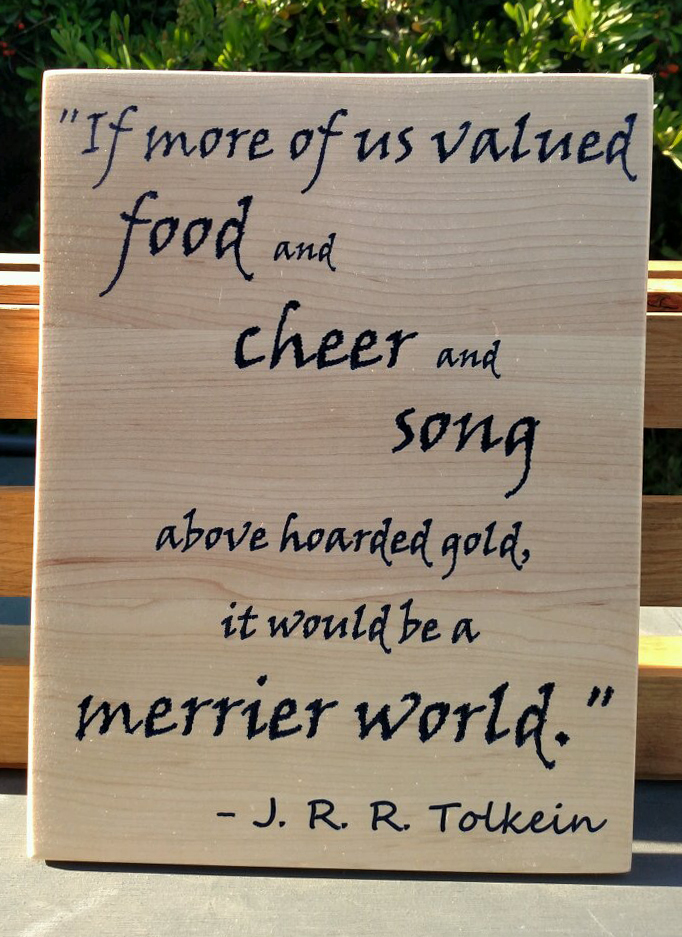 "If more of us valued
food and
cheer and
song
above hoarded gold,
it would be a
merrier world."
- J. R. R. Tolkein